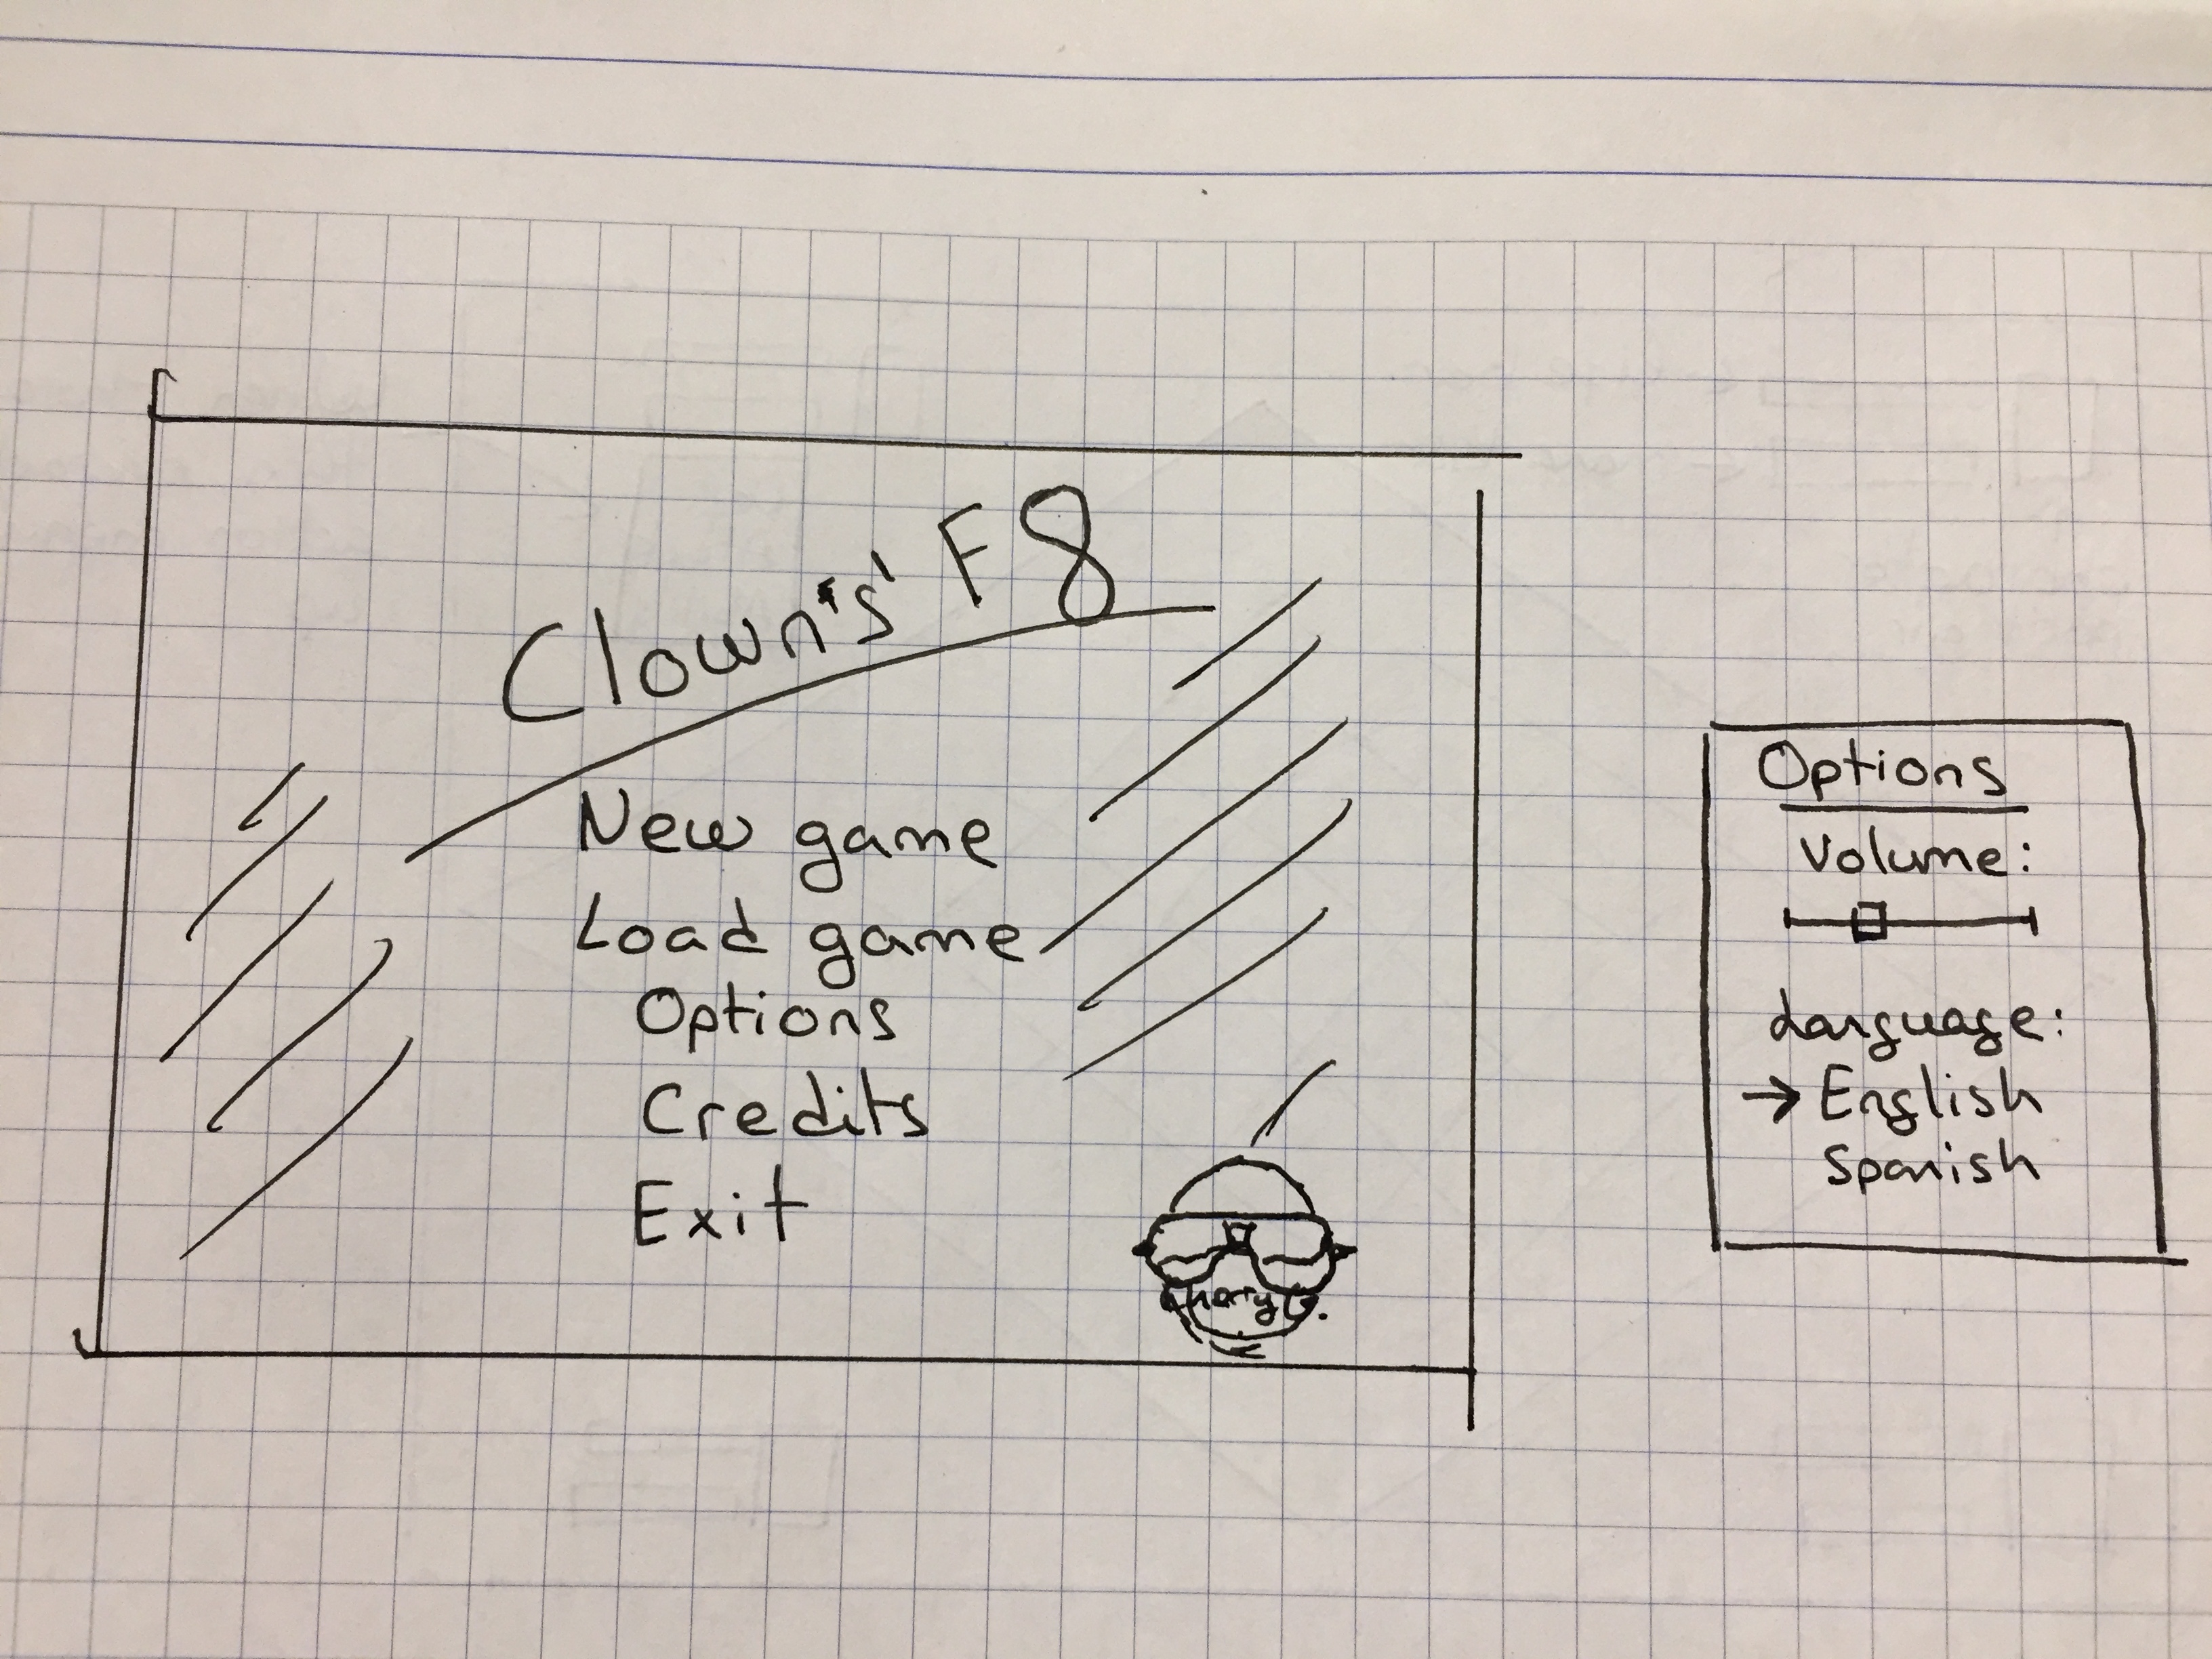 Clown's' F8
New game
Load game
Options
Credits
Exit
Options
Volume:
Language:
→ English
Spanish